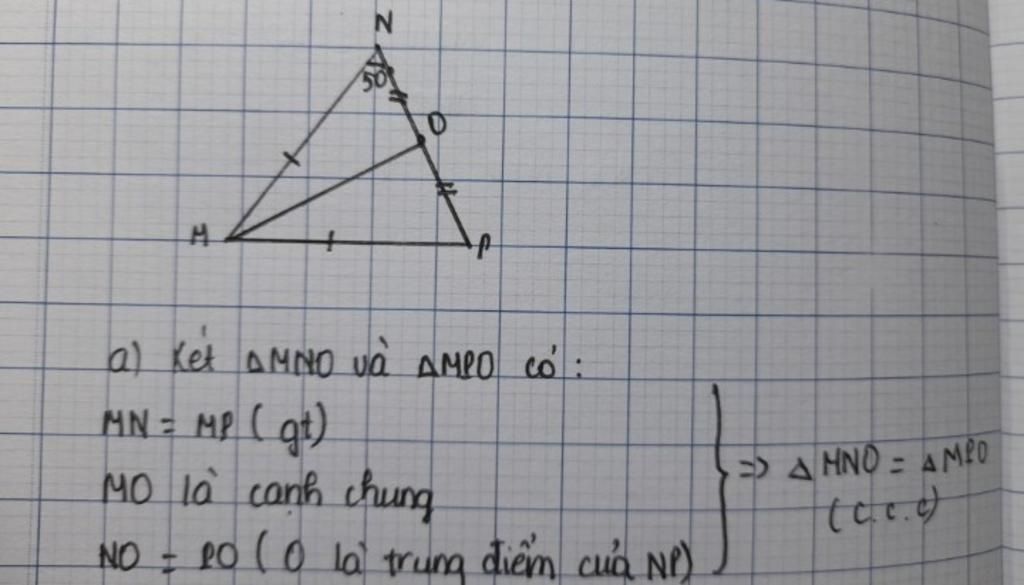 N
50
O
M
P
a) Xét ΔMNO và ΔMPO có:
MN = MP (gt)
MO là cạnh chung
NO = PO (O là trung điểm của NP)
=> ΔMNO = ΔMPO
(c.c.c)